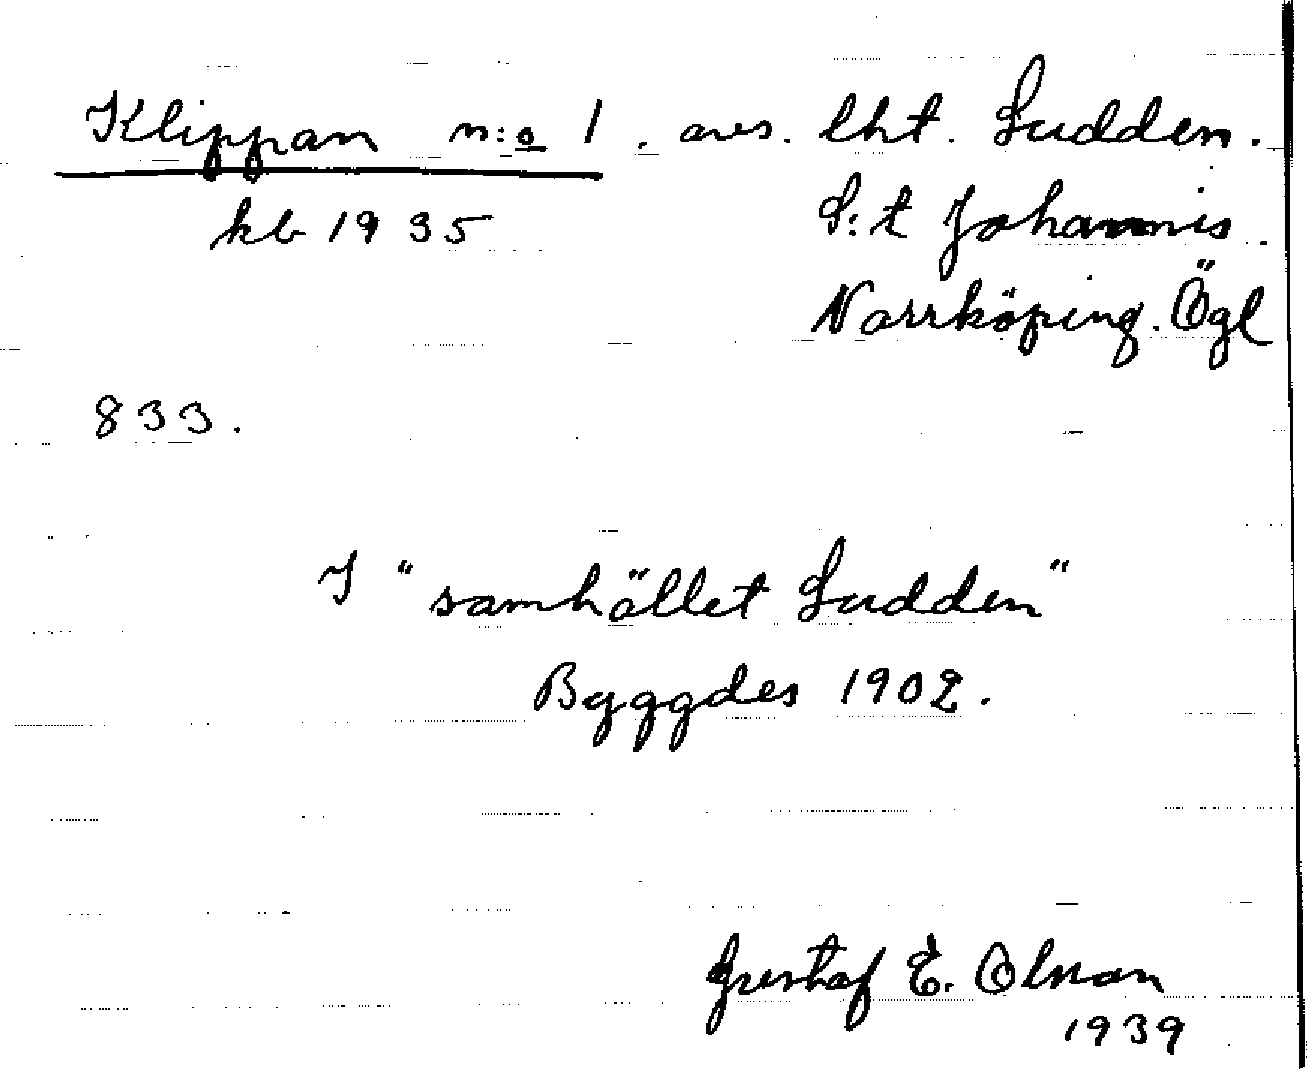 Klippan n:o 1. avs. lht. Sudden.
kb 1935 S:t Johannis.
Norrköping. Ögl
833.
I "samhället Sudden"
Byggdes 1902.
Gustaf E. Olson
1939